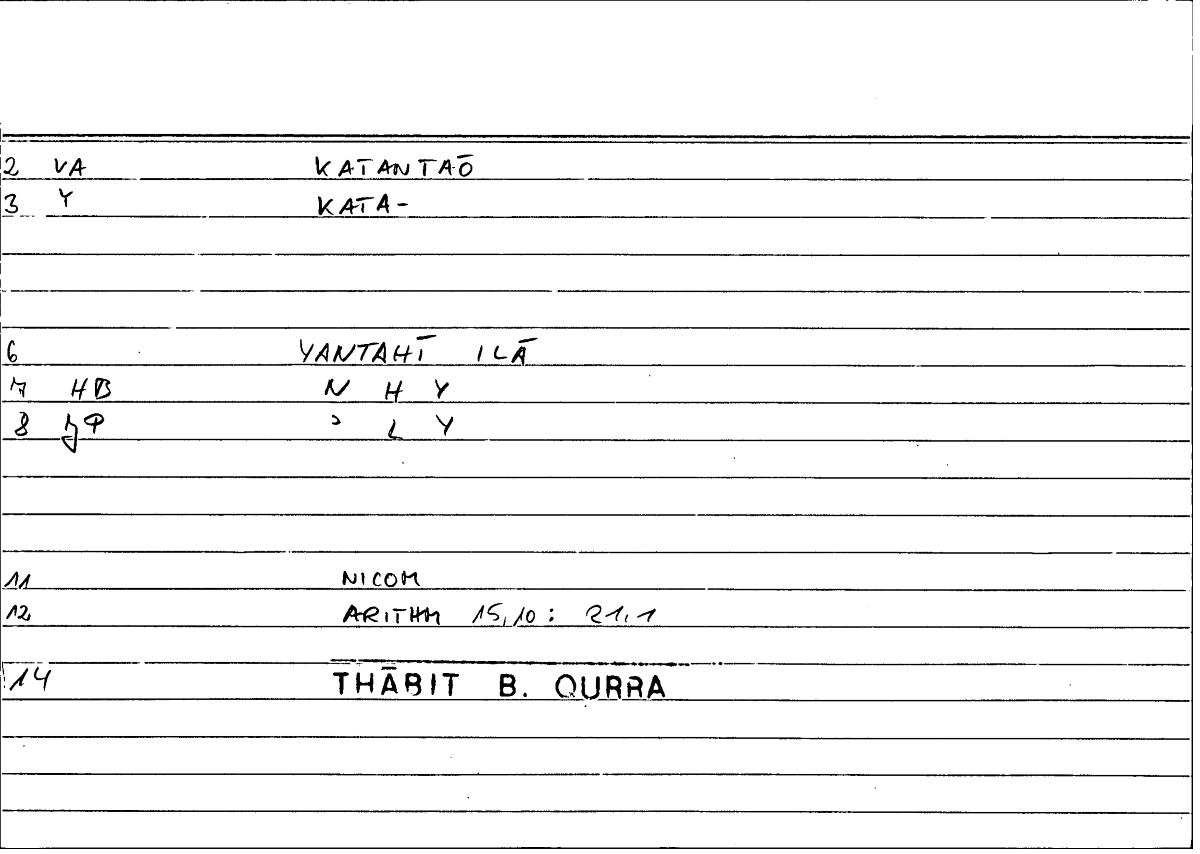 2 VA KATANTAŌ
3 Y KATA-
6 YANTAHĪ ILĀ
7 HB N H Y
8 ʾ L Y
11 NICOM
12 ARITHM 15,10: 21,1
14 THĀBIT B. QURRA